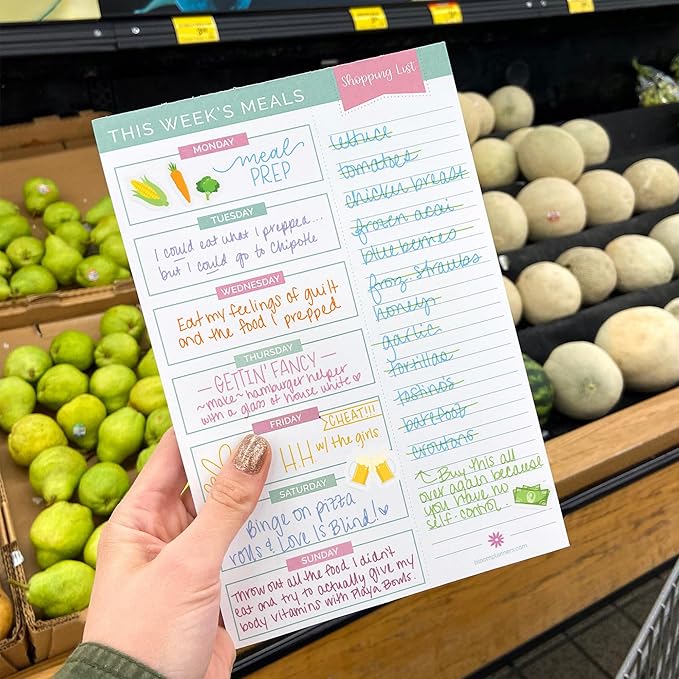 THIS WEEK'S MEALS
MONDAY
meal
PREP
TUESDAY
I could eat what I prepped...
but I could go to Chipotle
WEDNESDAY
Eat my feelings of guilt
and the food I prepped
THURSDAY
- GETTIN' FANCY -
~make~ hamburger helper
with a glass of house white ♡
FRIDAY
CHEAT!!!
H.H w/ the girls
SATURDAY
Binge on pizza
rolls & Love Is Blind! ♡
SUNDAY
Throw out all the food I didn't
eat and try to actually give my
body vitamins with Playa Bowls.
Shopping List
lettuce
tomatoes
chicken breast
frozen acai
blueberries
froz. straubs
honey
garlic
tortillas
tostinos
barefoot
croutons
Buy this all
over again because
you have no
self control.
bloomplanners.com